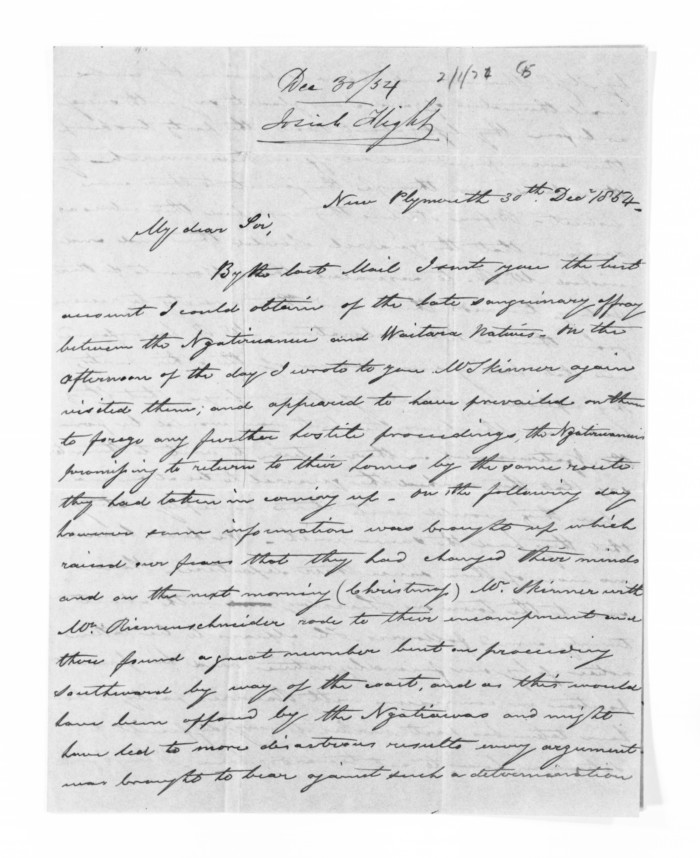 Dec 30/54 2/1/24
Josiah Flight
New Plymouth 30th Decr 1854
My dear Sir,
By the last Mail I sent you the best
account I could obtain of the late sanguinary affray
between the Ngatiruanui and Waitara Natives - On the
afternoon of the day I wrote to you Mr Skinner again
visited them; and appeared to have prevailed on them
to forego any further hostile proceedings, the Ngatiruanuis
promising to return to their homes by the same route
they had taken in coming up - On the following day
however some information was brought up which
raised our fears that they had changed their minds
and on the next morning (Christmas) Mr. Skinner with
Mr. Riemenschneider rode to their encampment and
there found a great number bent on proceeding
Southward by way of the coast, and as this would
have been opposed by the Ngatiawas and might
have led to more disastrous results every argument
was brought to bear against such a determination